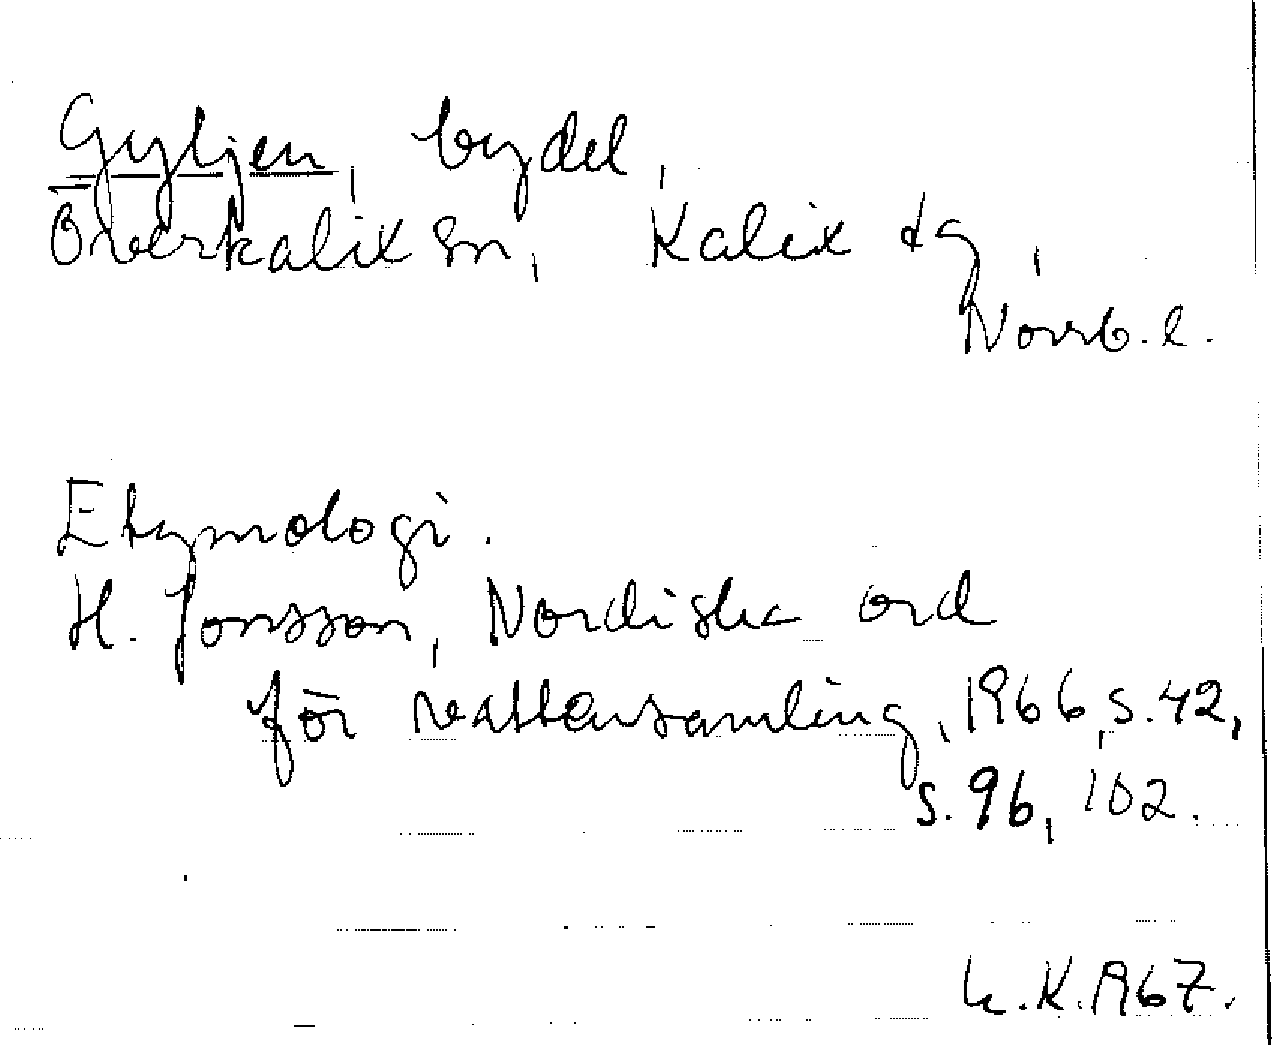 Gyljen, bydel,
Överkalix sn, Kalix tg,
Norrb. l.
Etymologi.
H. Jonsson, Nordiska ord
för vattensamling, 1966, s. 42,
s. 96, 102.
K. 1967.